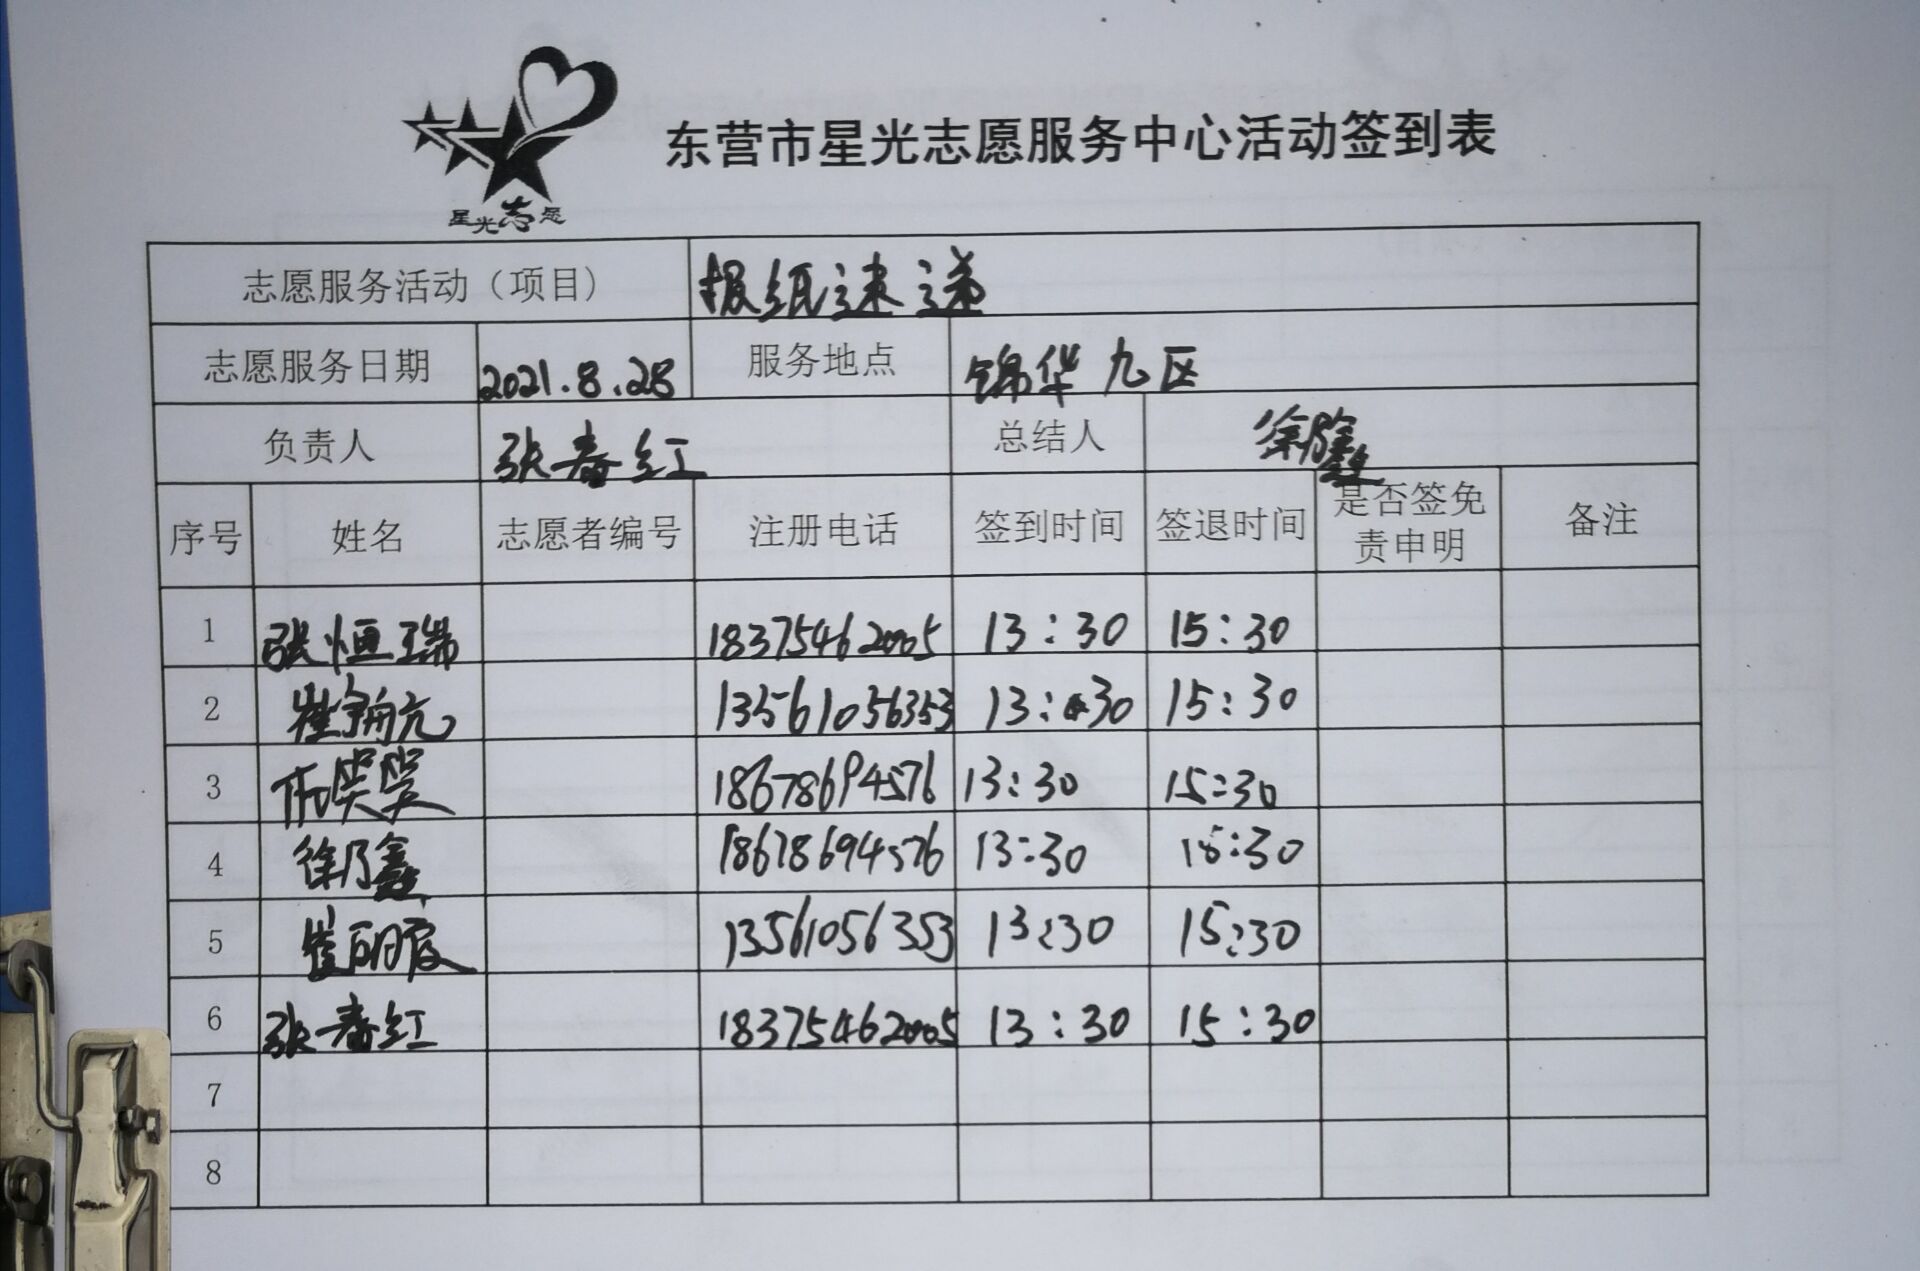 星光志愿
东营市星光志愿服务中心活动签到表
志愿服务活动（项目） 报纸速递
志愿服务日期 2021.8.28 服务地点 锦华九区
负责人 张春红 总结人 徐乃鑫
序号 姓名 志愿者编号 注册电话 签到时间 签退时间 是否签免责申明 备注
1 张恒瑞 18375462005 13:30 15:30
2 崔 13561056353 13:30 15:30
3 笑笑 18678694576 13:30 15:30
4 徐乃鑫 18678694576 13:30 15:30
5 崔 13561056353 13:30 15:30
6 张春红 18375462005 13:30 15:30
7
8